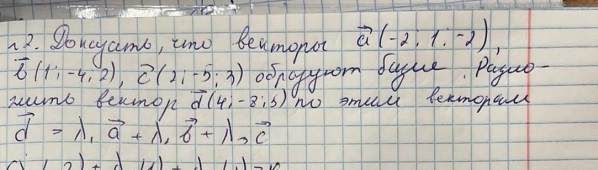 №2. Доказать, что векторы a⃗ (-2, 1, -2),
b⃗ (1; -4; 2), c⃗ (2; -5; 3) образуют базис. Разло-
жить вектор d⃗ (4; -8; 5) по этим векторам
d⃗ = λ₁ a⃗ + λ₁ b⃗ + λ₃ c⃗